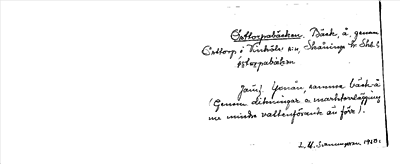 Esttorpabäcken. Bäck, å, genom
Esttorp i Vinköls s:n, Skånings h: Skb. l.
estorpabäken
Jämf. Yonån, samma bäck-å
(Genom dikningar o marktorrläggning
nu mindre vattenförande än förr).
L. M. Svenungsson 1920: